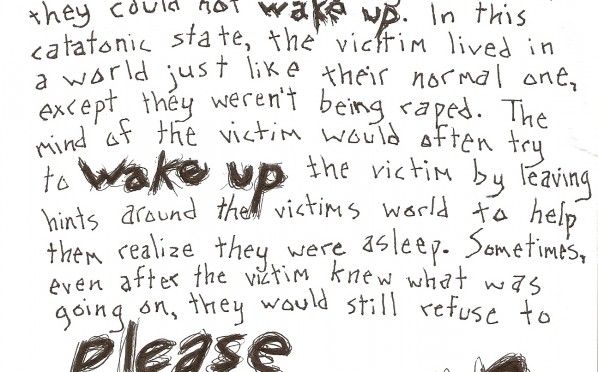 they could not wake up. In this
catatonic state, the victim lived in
a world just like their normal one,
except they weren't being raped. The
mind of the victim would often try
to wake up the victim by leaving
hints around the victims world to help
them realize they were asleep. Sometimes,
even after the victim knew what was
going on, they would still refuse to
please